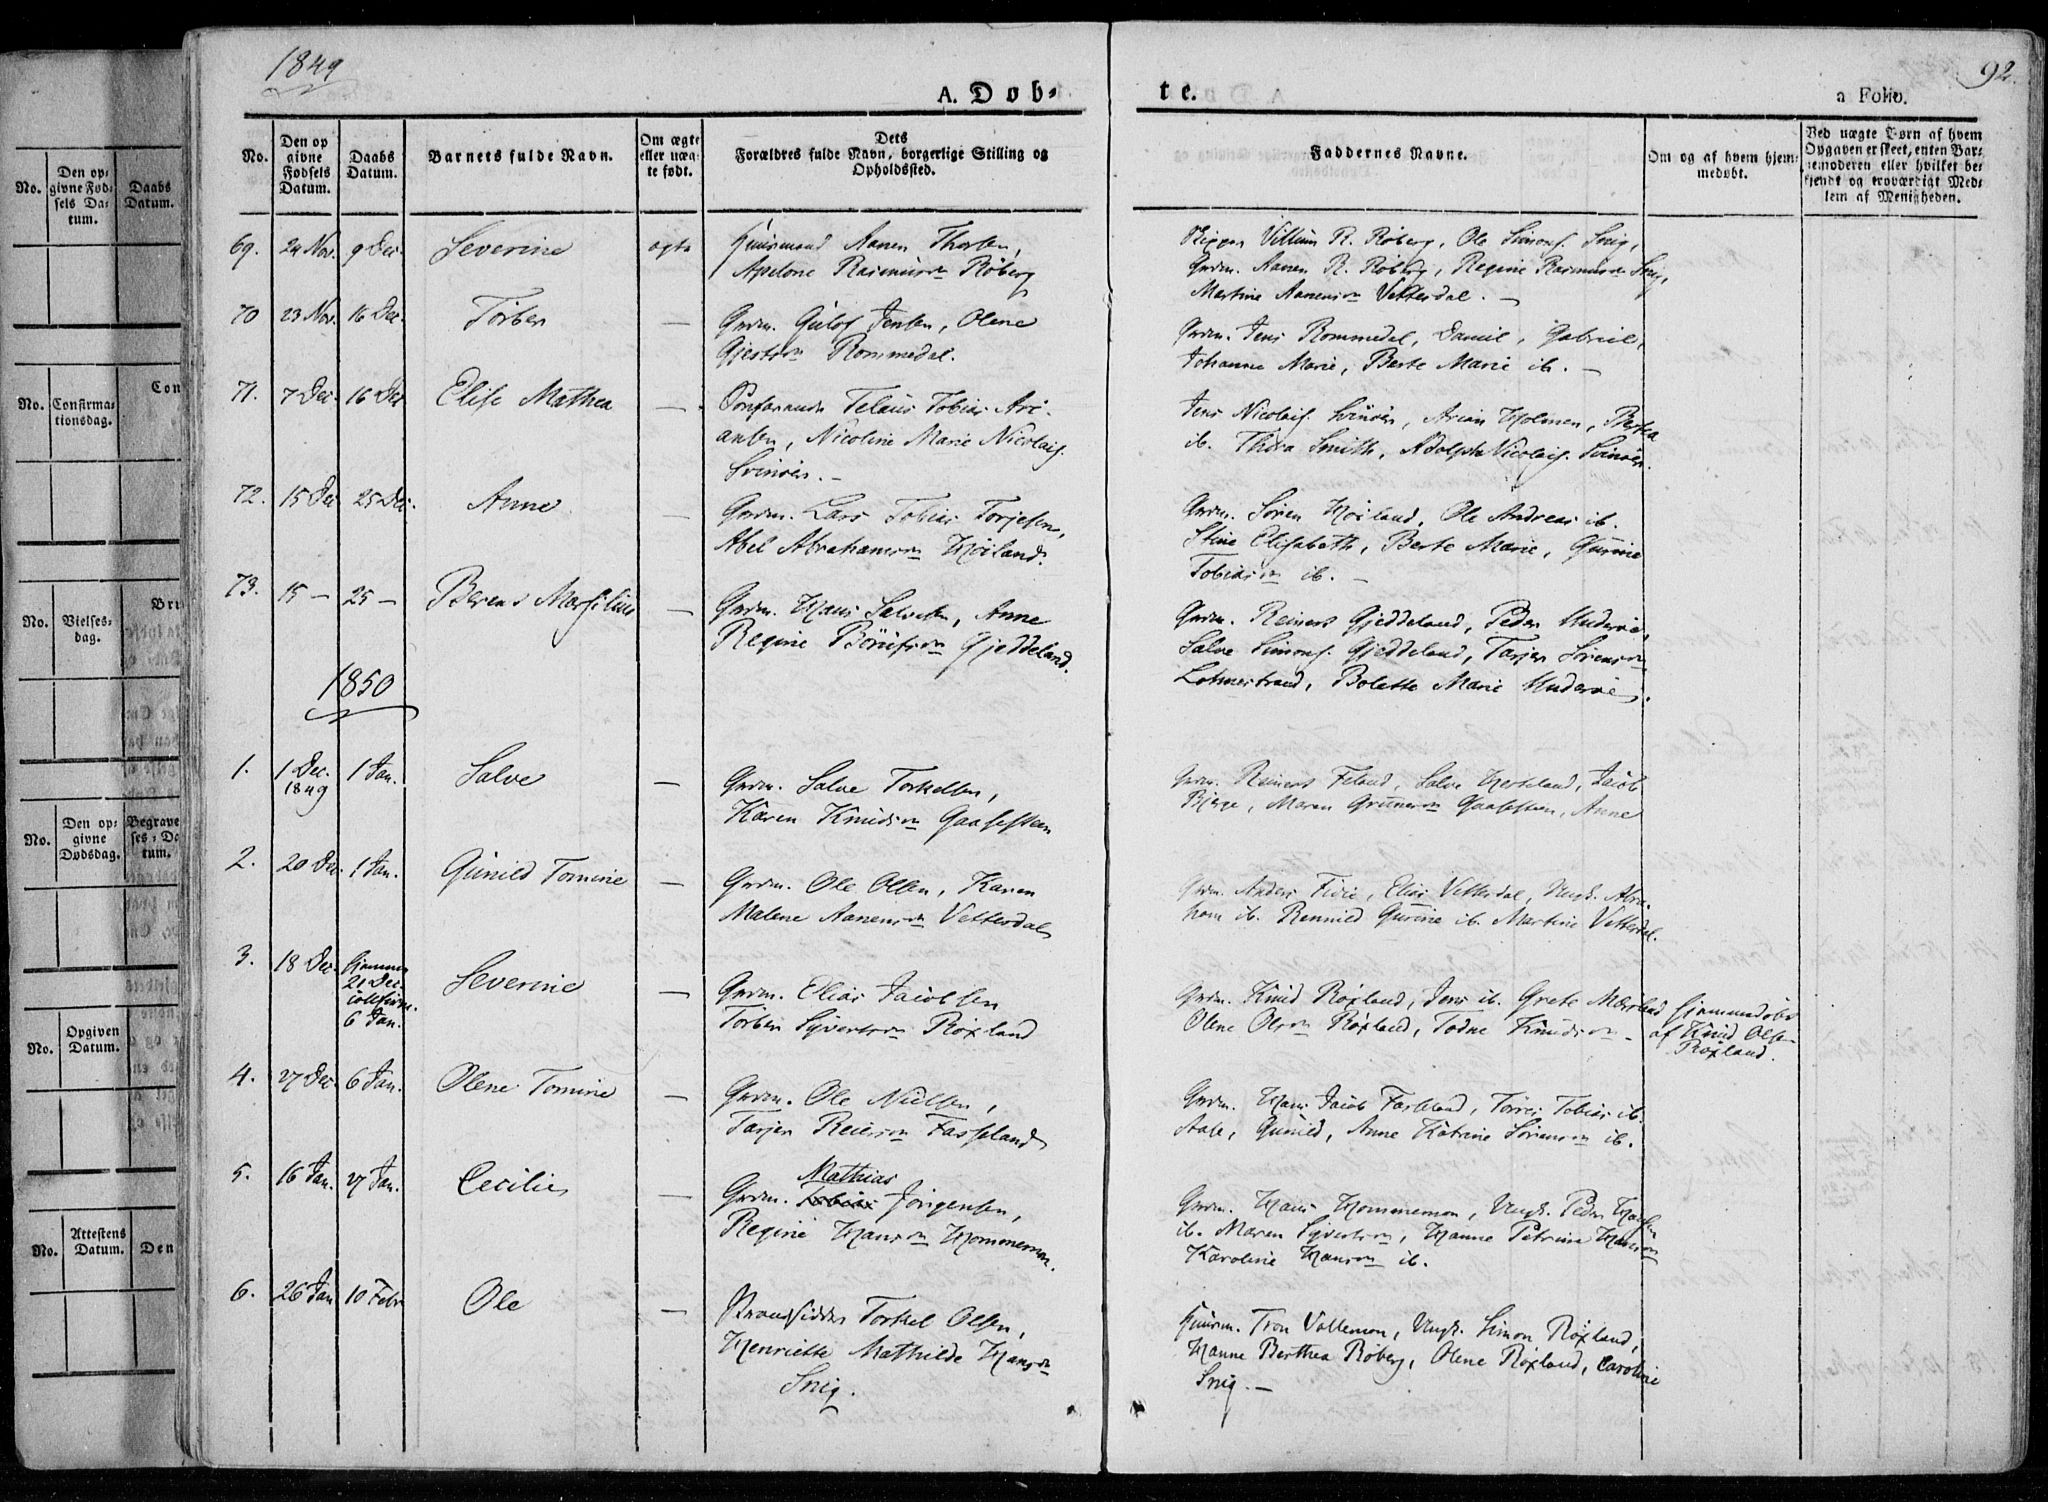 1849
92.
A. Døb-
te.
a Folio.
No.
Den op
givne
Fødsels
Datum.
Daabs
Datum.
Barnets fulde Navn.
Om ægte
eller uæg-
te født.
Dets
Forældres fulde Navn, borgerlige Stilling og
Opholdssted.
Faddernes Navne.
Om og af hvem hjem-
medøbt.
Ved uægte Børn af hvem
Opgaven er skeet, enten Bar-
nemoderen eller hvilket be-
kjendt og troværdigt Med-
lem af Menigheden.
69. 24 Nov. 9 Dec. Severine ægte Huusmand Aanen Thorsen,
Apelone Rasmusdn Røberg
Skipper Villum R. Røberg, Ole Simons. Snig,
Grdm. Aanen R. Røberg, Regine Rasmusdn Snig,
Martine Aanensdn Vetterdal. —
70 23 Nov. 16 Dec. Torber — Grdm. Gulof Jensen, Olene
Gjertsdn Rommedal.
Grdm. Jens Rommedal, Daniel, Gabriel,
Johanne Marie, Berte Marie ib. —
71. 7 Dec. 16 Dec Elise Mathea — Telaus Tobias Ari-
ansen, Nicoline Marie Nicolais.
Svinøer. —
Jens Nicolais. Svinøer, Arian Holmen, Berthea
ib. Thora Smith, Adolph Nicolais. Svinøer.
72. 15 Dec 25 Dec. Anne — Grdm. Lars Tobias Torjesen,
Abel Abrahamsdn Høiland.
Grdm. Søren Høiland, Ole Andreas ib.
Stine Elisabeth, Berte Marie, Gurine
Tobiasdn ib. —
73. 15 — 25 — Berent Marsilius — Grdm. Hans Salvesen, Anne
Regine Gjeddeland.
Grdm. Reinert Gjeddeland, Peder Underøe,
Salve Simons. Gjeddeland, Tarjer Sørensdn
Lohnestrand, Bolette Marie Underøe.
1850
1. 1 Dec.
1849 1 Jan. Salve — Grdm. Salve Torkelsen,
Karen Knudsdn Gaaseskeen
Grdm. Reinert Feland, Salve Hesteland, Jacob
Bjerge, Maren Gunnersdn Gaaseskeen, Anne
2. 20 Dec. 1 Jan. Gunild Tomine — Grdm. Ole Olsen, Karen
Malene Aanensdn Vetterdal
Grdm. Anders Fivie, Elias Vetterdal, Ungk. Abra-
ham ib. Rennild Gurine ib. Martine Vetterdal.
3. 18 Dec. hjemme
21 Dec.
6 Jan. Severine — Grdm. Elias Jacobsen
Torber Syvertsdn Røxland
Grdm. Knud Røxland, Jens ib. Grete Mærland
Olene Olsdn Røxland, Todne Knudsdn —
hjemmedøbt
af Knud Olsen
Røxland.
4. 27 Dec. 6 Jan. Olene Tomine — Grdm. Ole Nielsen,
Tarjer Reiersdn Fasseland
Grdm. Hans Jacob Fasseland, Torres Tobias ib.
Aase, Gunild, Anne Katrine Sørensdn ib.
5. 16 Jan. 27 Jan. Cecilie — Mathias
Grdm. Tobias Jørgensen,
Regine Hansdn Hommemen.
Grdm. Hans Hommemen, Ungk. Peder Hansen
ib. Maren Syvertsdn, Hanne Petrine Hansdn
Karoline Hansdn ib.
6. 26 Jan 10 Febr Ole — Strandsidder Torkel Olsen,
Henriette Mathilde Hansdn
Snig.
Huusm. Tron Vallemon, Ungk. Simon Røxland,
Hanne Berthea Røberg, Olene Røxland, Caroline
Snig. —
No.
Den op-
givne Fød-
sels Da-
tum.
Daabs
Datum.
No.
Confirma-
tionsdag.
Con
No.
Vielses-
dag.
Bru
No.
Den op-
givne
Dødsdag.
Begravel
ses-Da-
tum.
No.
Opgiven
Datum.
No.
Attestens
Datum.
Den